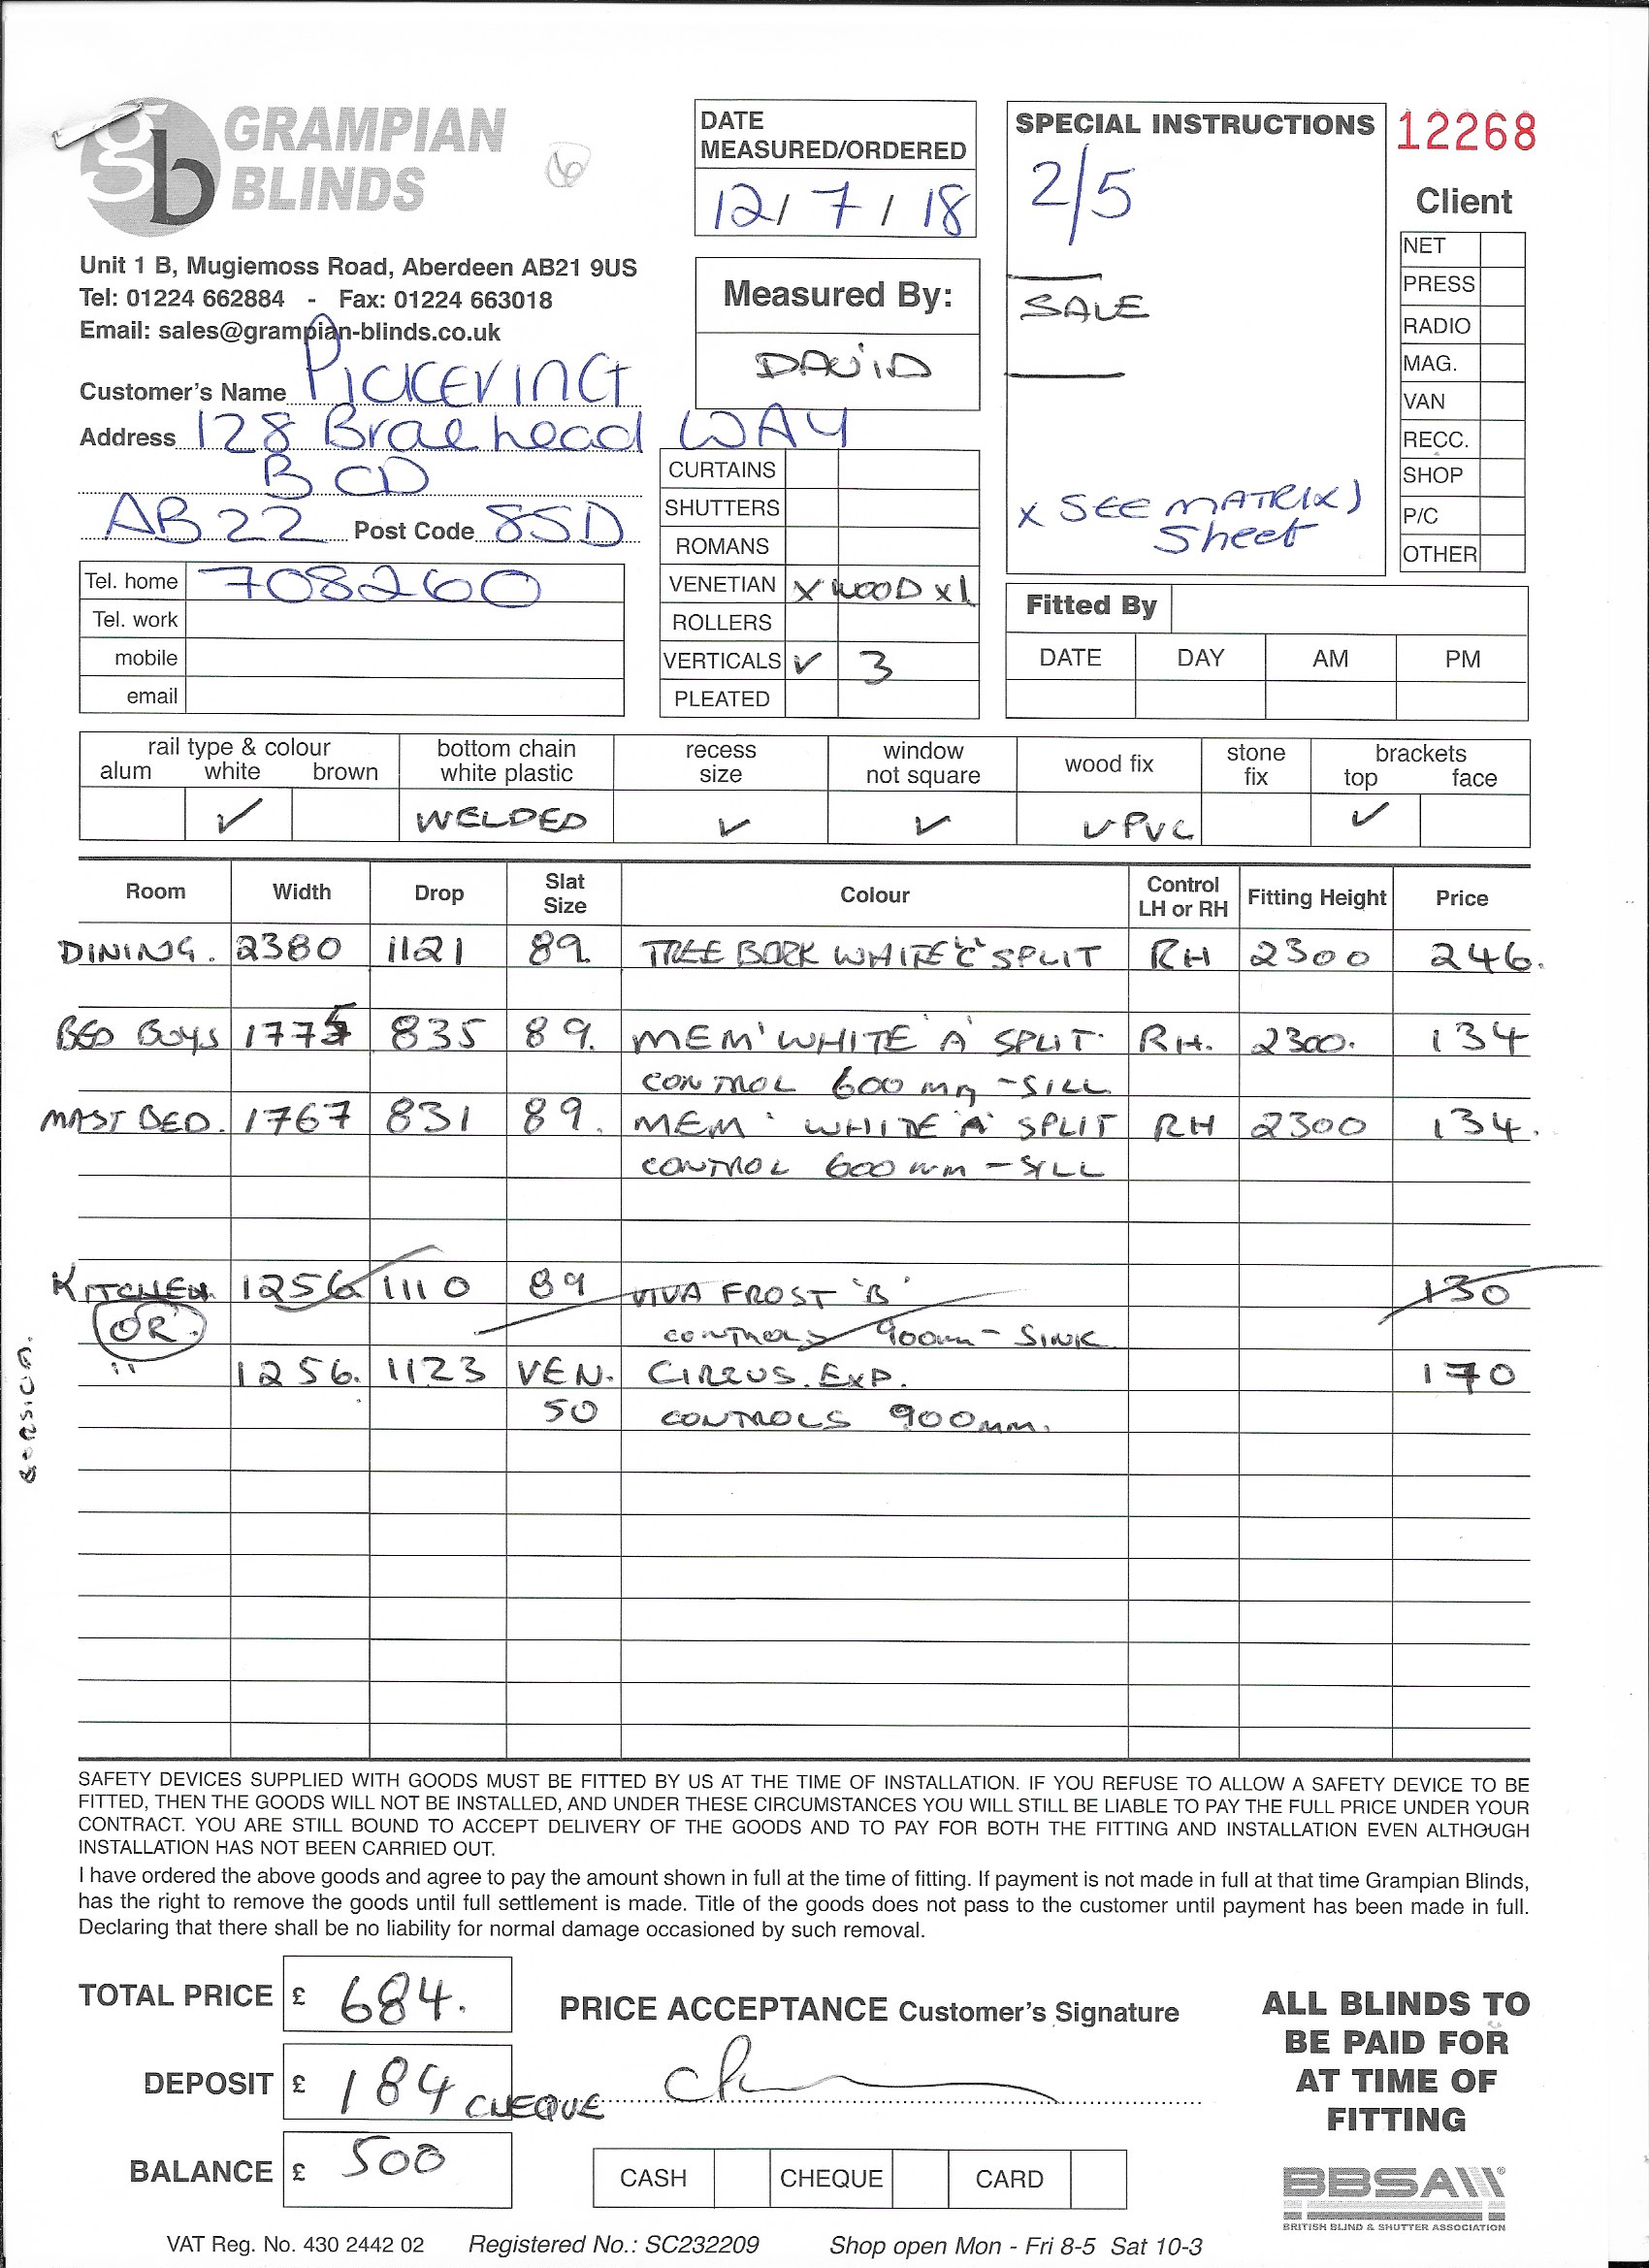 gb GRAMPIAN BLINDS
6
Unit 1 B, Mugiemoss Road, Aberdeen AB21 9US
Tel: 01224 662884 - Fax: 01224 663018
Email: sales@grampian-blinds.co.uk
Customer's Name PICKERING
Address 128 Braehead WAY
B CD
AB22 Post Code 8SD
Tel. home 708260
Tel. work
mobile
email
DATE MEASURED/ORDERED
12/7/18
Measured By:
DAVID
CURTAINS
SHUTTERS
ROMANS
VENETIAN x WOOD x1
ROLLERS
VERTICALS ✓ 3
PLEATED
SPECIAL INSTRUCTIONS
2/5
SALE
x SEE MATRIX)
Sheet
12268
Client
NET
PRESS
RADIO
MAG.
VAN
RECC.
SHOP
P/C
OTHER
Fitted By
DATE DAY AM PM
rail type & colour bottom chain recess window wood fix stone brackets
alum white brown white plastic size not square fix top face
✓ WELDED ✓ ✓ UPVC ✓
Room Width Drop Slat Size Colour Control LH or RH Fitting Height Price
DINING. 2380 1121 89. TREE BARK WHITE 'C' SPLIT RH 2300 246.
BED BOYS 1775 835 89. MEM' WHITE 'A' SPLIT RH. 2300. 134
CONTROL 600 mm - SILL
MAST BED. 1767 831 89. MEM' WHITE 'A' SPLIT RH 2300 134.
CONTROL 600 mm - SILL
KITCHEN 1256 1110 89 VIVA FROST 'B' 130
OR. CONTROLS 900mm - SINK
" 1256. 1123 VEN. CIRRUS. EXP. 170
50 CONTROLS 900mm.
SAFETY DEVICES SUPPLIED WITH GOODS MUST BE FITTED BY US AT THE TIME OF INSTALLATION. IF YOU REFUSE TO ALLOW A SAFETY DEVICE TO BE
FITTED, THEN THE GOODS WILL NOT BE INSTALLED, AND UNDER THESE CIRCUMSTANCES YOU WILL STILL BE LIABLE TO PAY THE FULL PRICE UNDER YOUR
CONTRACT. YOU ARE STILL BOUND TO ACCEPT DELIVERY OF THE GOODS AND TO PAY FOR BOTH THE FITTING AND INSTALLATION EVEN ALTHOUGH
INSTALLATION HAS NOT BEEN CARRIED OUT.
I have ordered the above goods and agree to pay the amount shown in full at the time of fitting. If payment is not made in full at that time Grampian Blinds,
has the right to remove the goods until full settlement is made. Title of the goods does not pass to the customer until payment has been made in full.
Declaring that there shall be no liability for normal damage occasioned by such removal.
TOTAL PRICE £ 684.
DEPOSIT £ 184 CHEQUE
BALANCE £ 500
PRICE ACCEPTANCE Customer's Signature
CASH CHEQUE CARD
ALL BLINDS TO
BE PAID FOR
AT TIME OF
FITTING
BBSA
BRITISH BLIND & SHUTTER ASSOCIATION
VAT Reg. No. 430 2442 02 Registered No.: SC232209 Shop open Mon - Fri 8-5 Sat 10-3